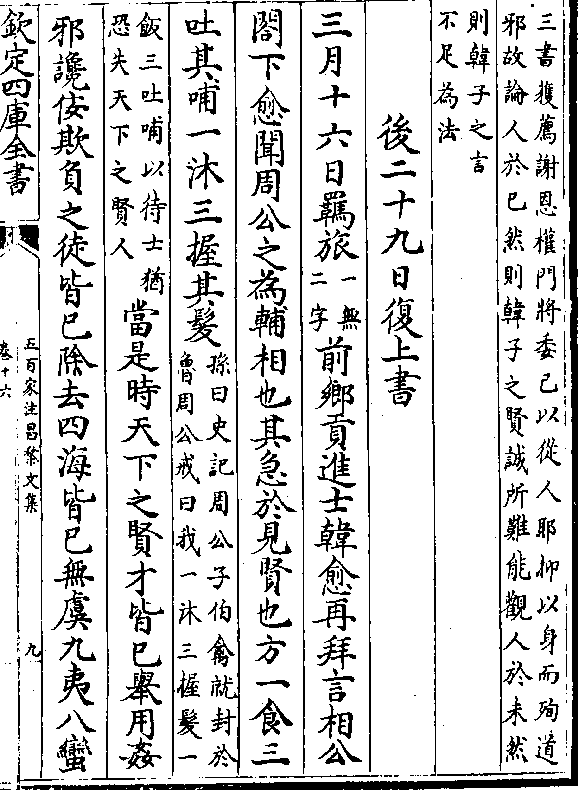 三書獲薦謝恩權門將委已以從人耶抑以身而殉道
邪故論人於已然則韓子之賢誠所難能觀人於未然
則韓子之言
不足為法
後二十九日復上書
三月十六日羈旅一無二字前鄉貢進士韓愈再拜言相公
閤下愈聞周公之為輔相也其急於見賢也方一食三
吐其哺一沐三握其髮孫曰史記周公子伯禽就封於魯周公戒曰我一沐三握髮一
飯三吐哺以待士猶恐失天下之賢人當是時天下之賢才皆已舉用姦
邪讒佞欺負之徒皆已除去四海皆已無虞九夷八蠻
欽定四庫全書
五百家注昌黎文集
卷十六
九